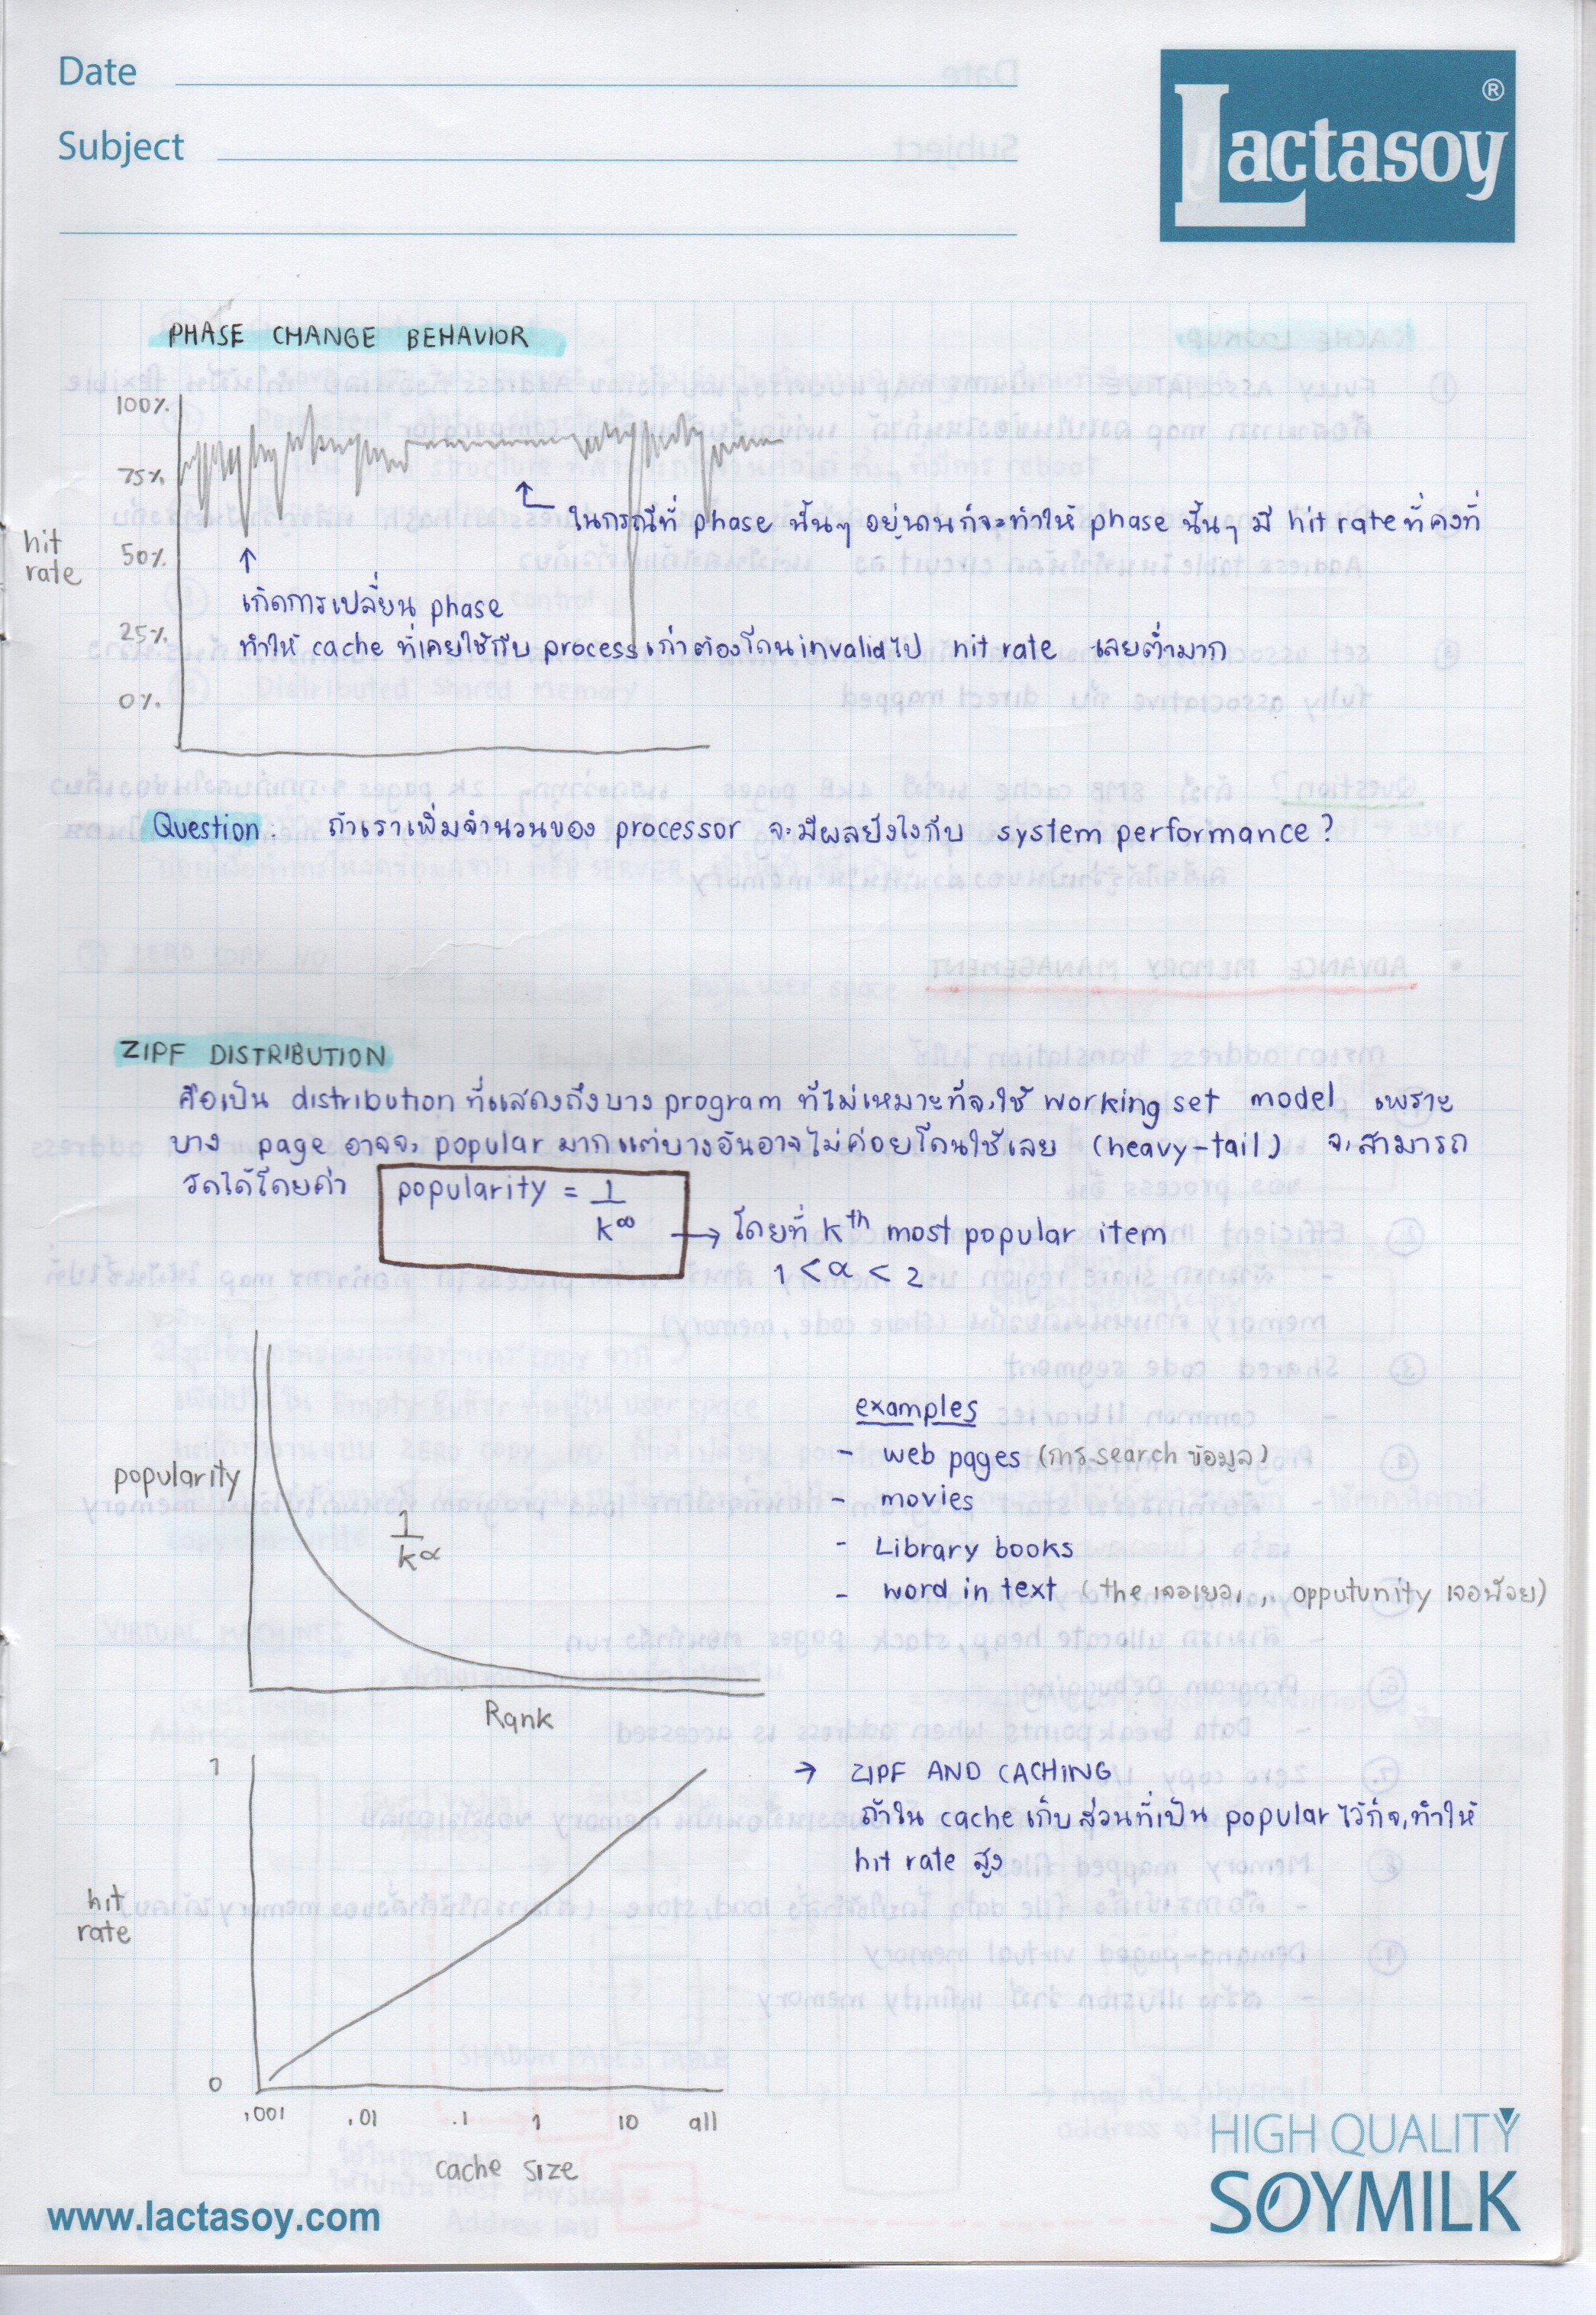 Date
Subject
Lactasoy ®
PHASE CHANGE BEHAVIOR
100%
75%
50%
25%
0%
hit
rate
ในกรณีที่ phase นั้นๆ อยู่นานก็จะทำให้ phase นั้นๆ มี hit rate ที่คงที่
เกิดการเปลี่ยน phase
ทำให้ cache ที่เคยใช้กับ process เก่าต้องโดน invalid ไป hit rate เลยต่ำมาก
Question : ถ้าเราเพิ่มจำนวนของ processor จะมีผลยังไงกับ system performance ?
ZIPF DISTRIBUTION
คือเป็น distribution ที่แสดงถึงบาง program ที่ไม่เหมาะที่จะใช้ working set model เพราะ
บาง page อาจจะ popular มากแต่บางอันอาจไม่ค่อยโดนใช้เลย (heavy-tail) จะสามารถ
วัดได้โดยค่า popularity = 1/k^∞
→ โดยที่ kth most popular item
1 < α < 2
popularity
1/k^α
Rank
examples
- web pages (การ search ข้อมูล)
- movies
- Library books
- word in text (the เจอเยอะ, opputunity เจอน้อย)
→ ZIPF AND CACHING
ถ้าใน cache เก็บส่วนที่เป็น popular ไว้ก็จะทำให้
hit rate สูง
1
hit
rate
0
.001 .01 .1 1 10 all
cache size
HIGH QUALITY
SOYMILK
www.lactasoy.com